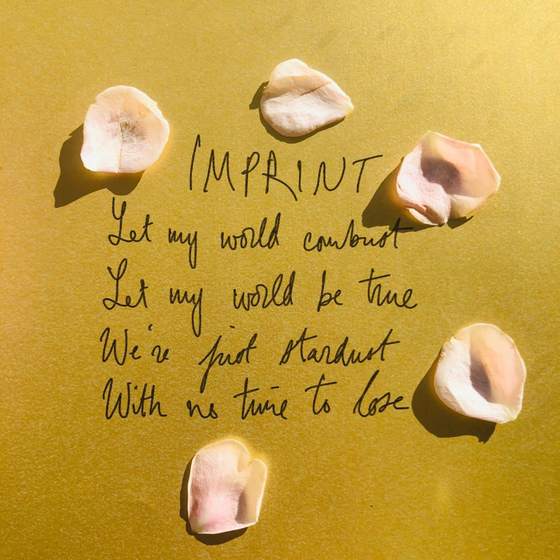 IMPRINT
Let my world combust
Let my world be true
We're just stardust
With no time to lose